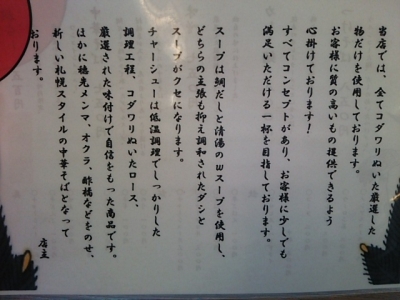 当店では、全てコダワりぬいた厳選した
物だけを使用しております。
お客様に質の高いもの提供できるよう
心掛けております!
すべてコンセプトがあり、お客様に少しでも
満足いただける一杯を目指しております。
スープは鯛だしと清湯のWスープを使用し、
どちらの主張も抑え調和されたダシと
スープがクセになります。
チャーシューは低温調理でしっかりした
調理工程、コダワりぬいたロース、
厳選された味付けで自信をもった商品です。
ほかに穂先メンマ、オクラ、酢橘などをのせ、
新しい札幌スタイルの中華そばとなって
おります。
店主